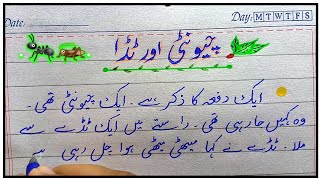 Date: Day: M T W T F S
چیونٹی اور ٹڈا
ایک دفعہ کا ذکر ہے۔ ایک چیونٹی تھی۔
وہ کہیں جا رہی تھی۔ راستے میں ایک ٹڈے سے
ملا۔ ٹڈے نے کہا میٹھی میٹھی ہوا چل رہی ہے